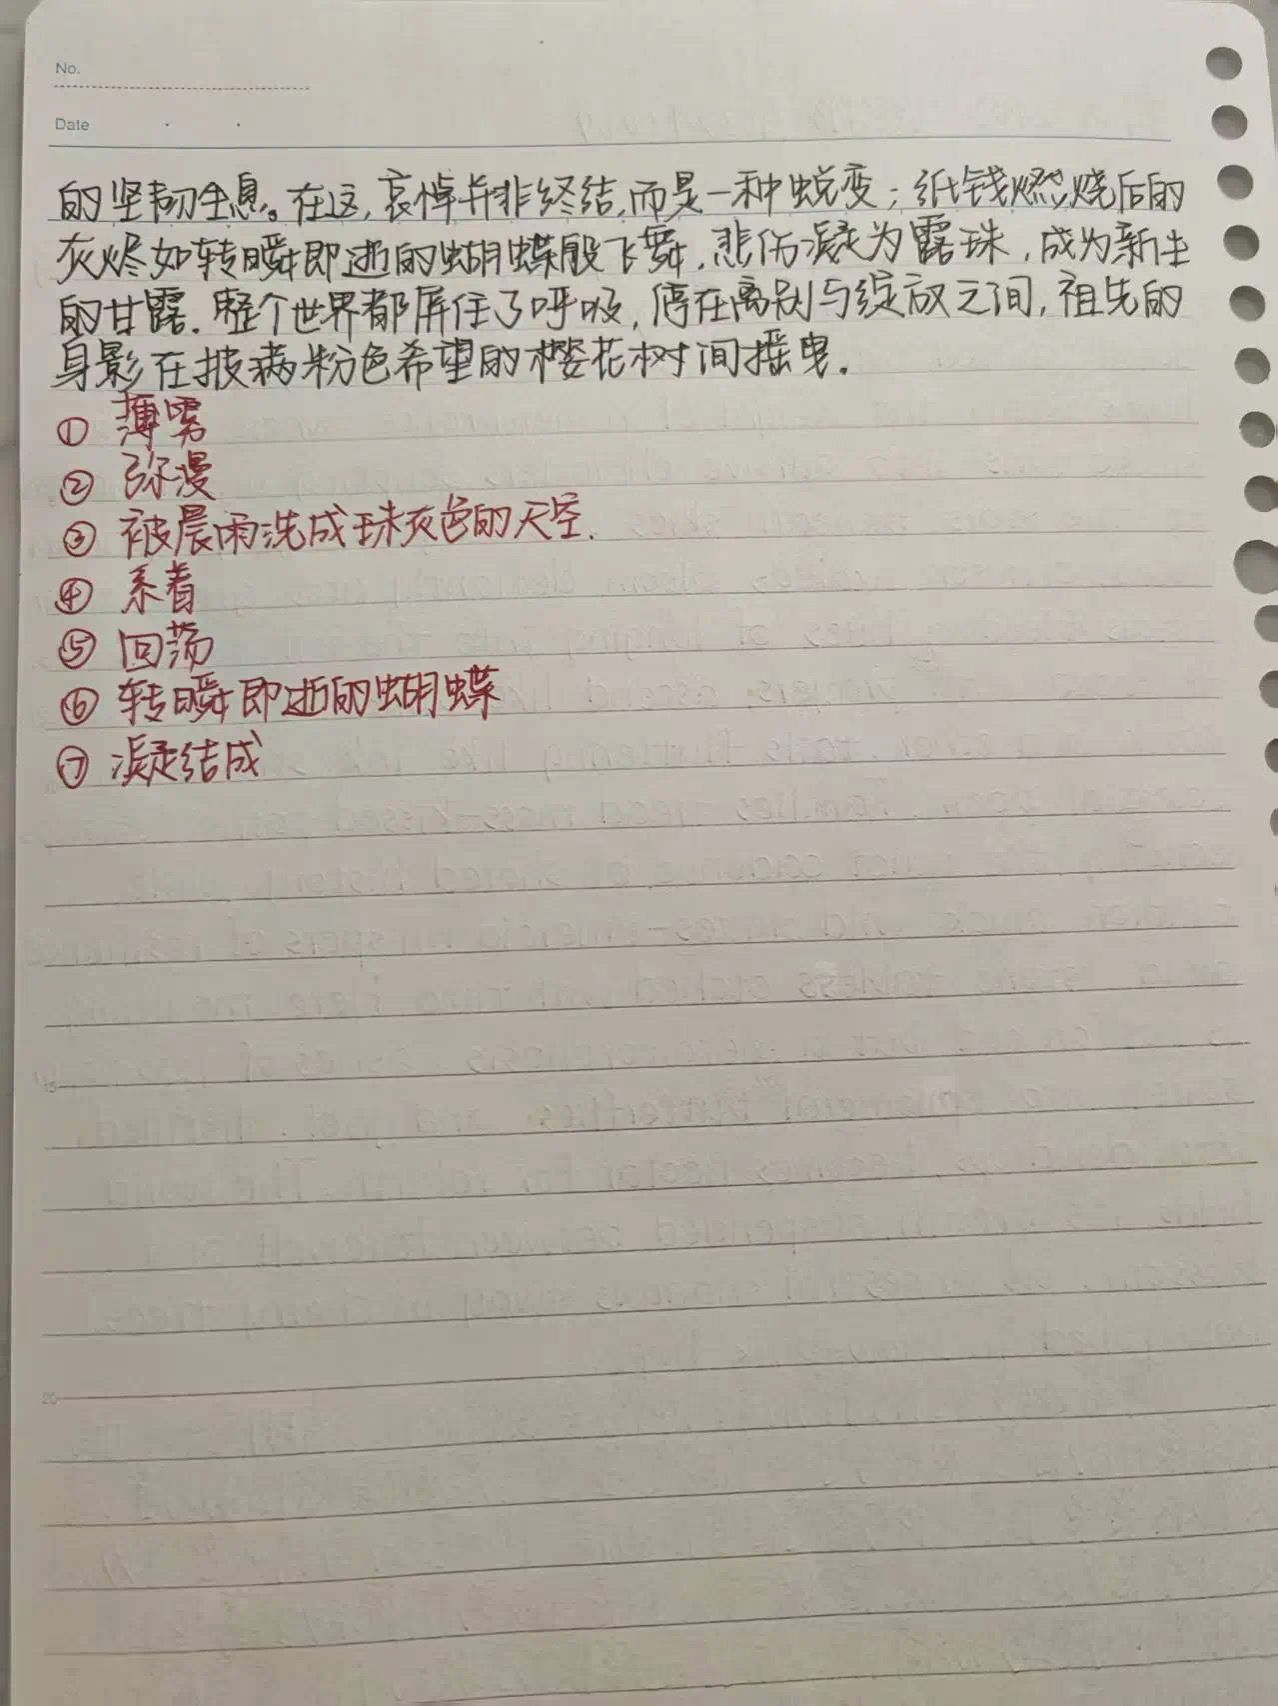 No.
Date
的坚韧生息。在这,哀悼并非终结,而是一种蜕变；纸钱燃烧后的
灰烬如转瞬即逝的蝴蝶般飞舞,悲伤凝为露珠,成为新生
的甘露.整个世界都屏住了呼吸,停在离别与绽放之间,祖先的
身影在披满粉色希望的樱花树间摇曳.
① 薄雾
② 弥漫
③ 被晨雨洗成珠灰色的天空.
④ 系着
⑤ 回荡
⑥ 转瞬即逝的蝴蝶
⑦ 凝结成
20